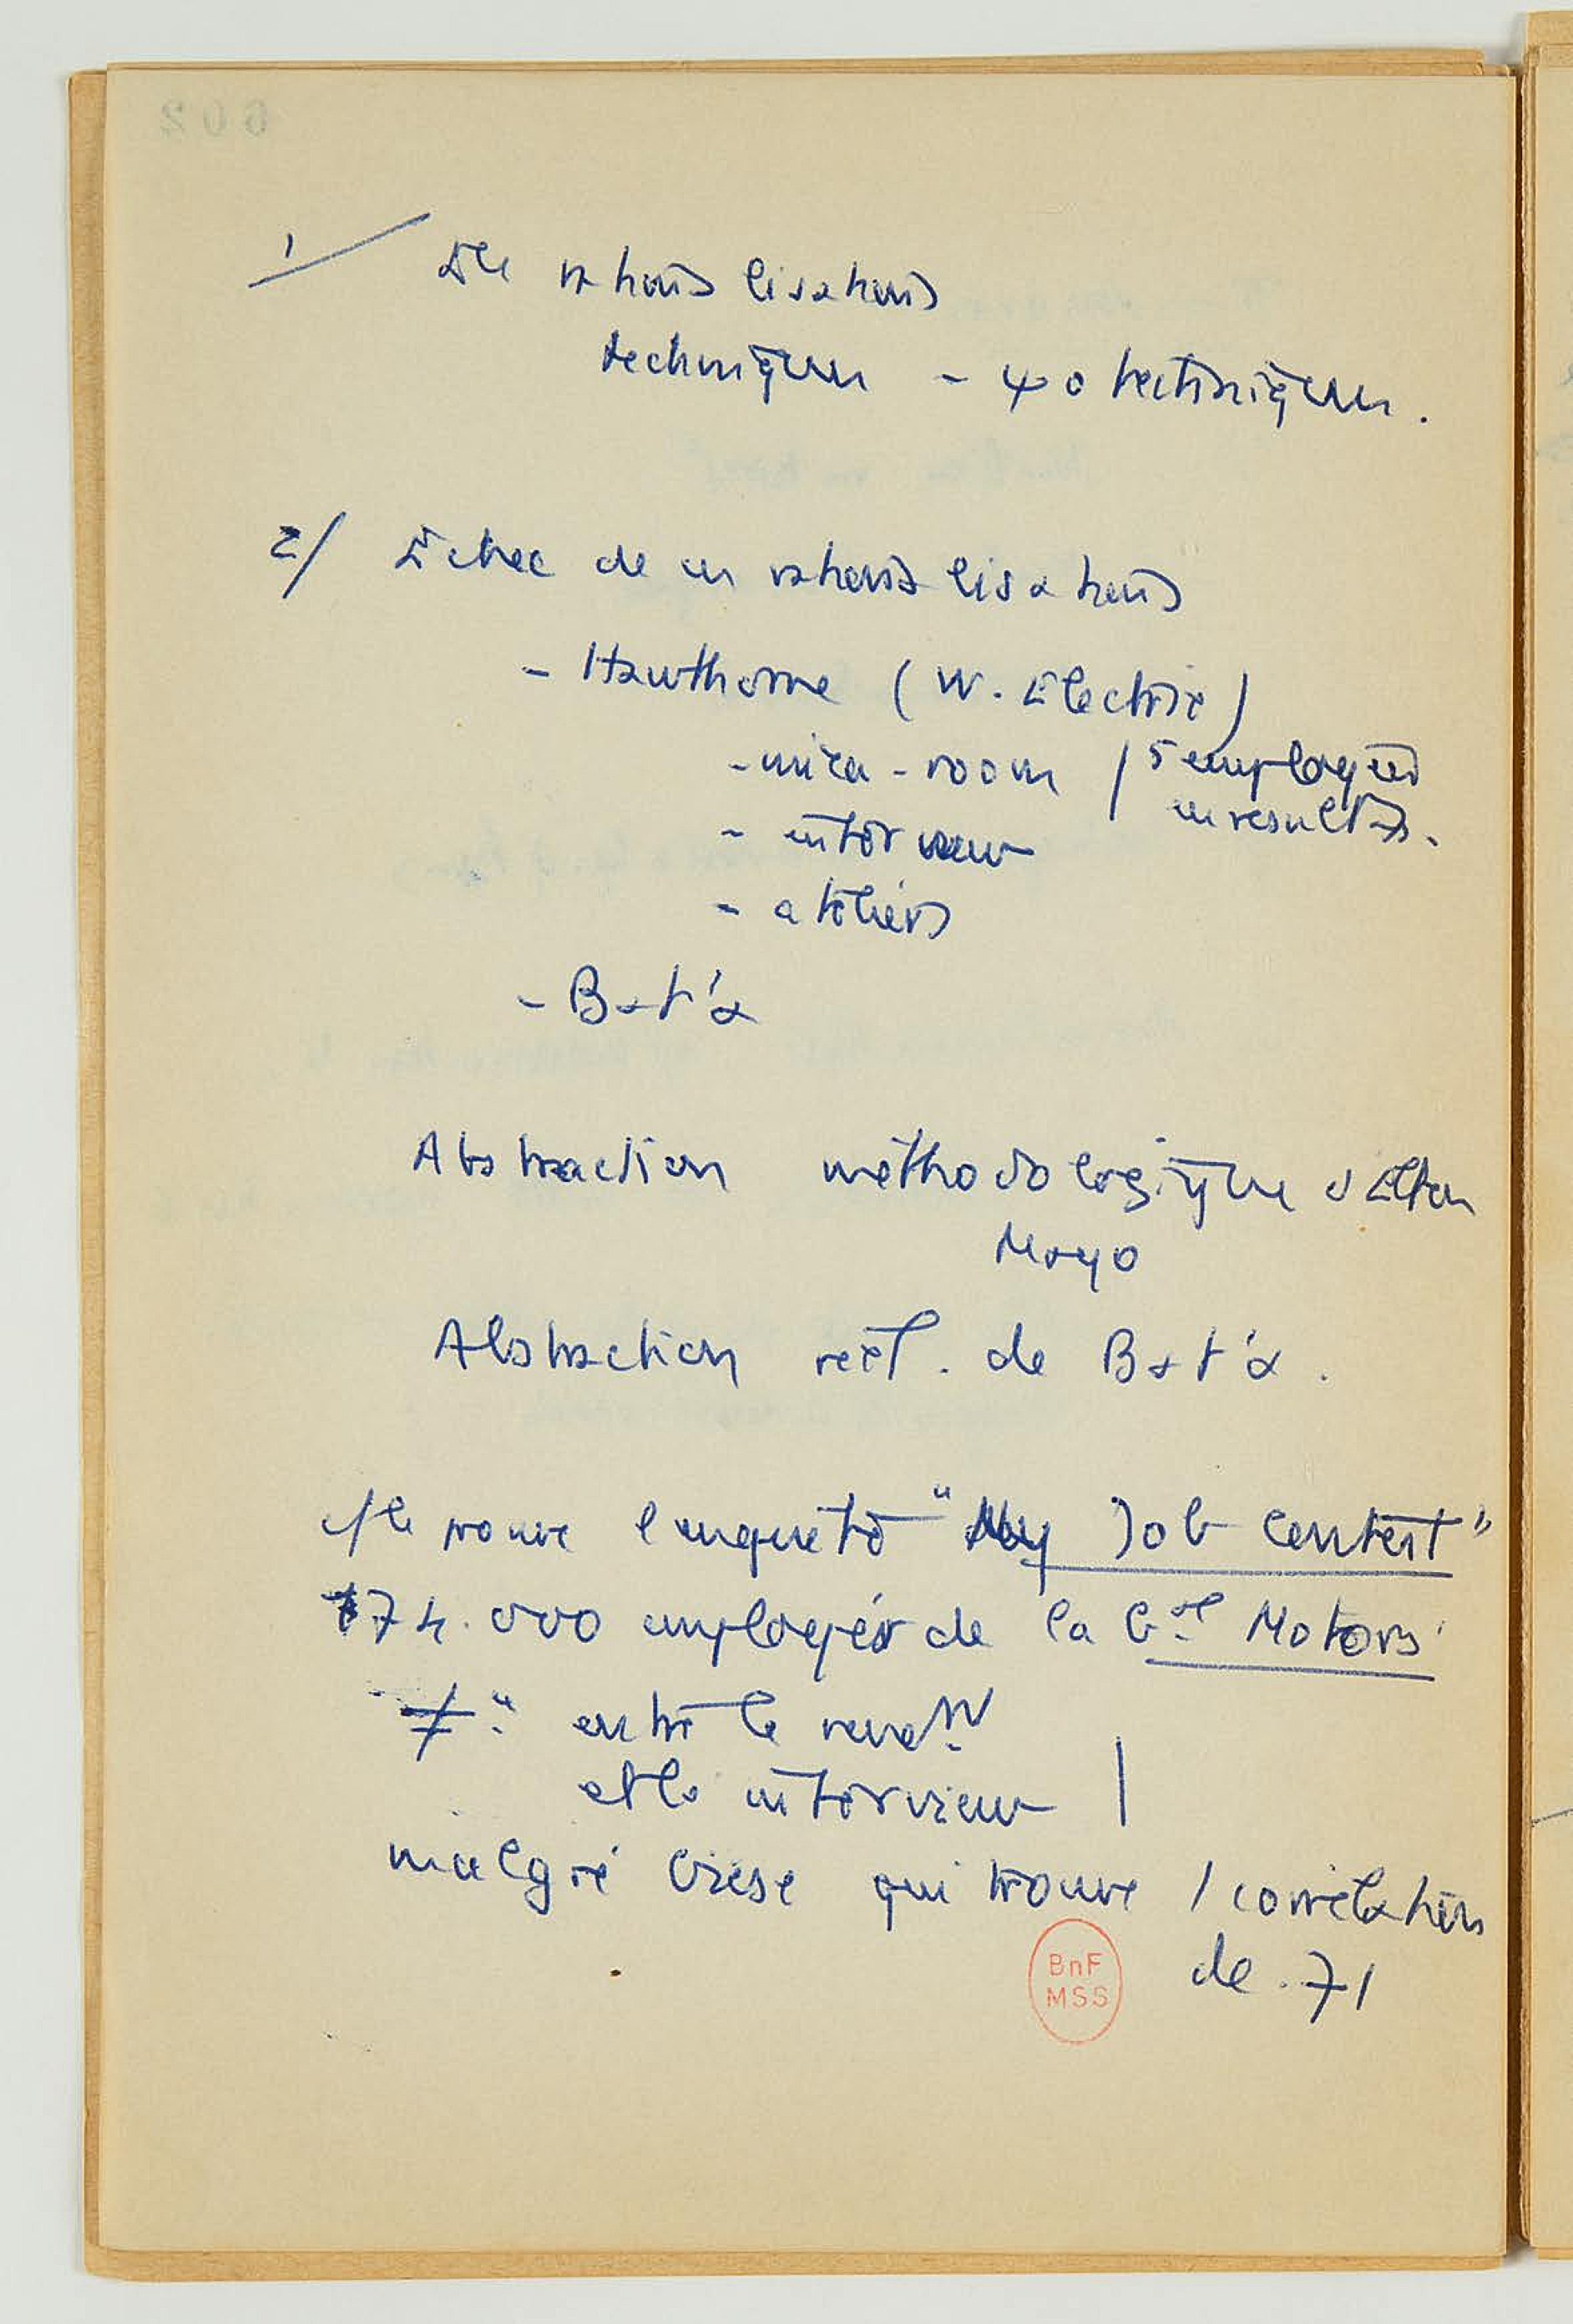 1/ Les rationalisations
techniques - ψotechniques.
2/ Échec de ces rationalisations
- Hawthorne (W. Electric)
- mica-room / 5 employées
- interview
ms résultats.
- ateliers
- Bat'a
Abstraction méthodologique d'Elton
Mayo
Abstraction réelle. de Bat'a.
c/ le prouve l'enquête "My Job Contest"
174.000 employés de la Gal Motors
≠ces entre le
et les interview |
malgré qui trouve 1 corrélation
de .71
BnF
MSS
602